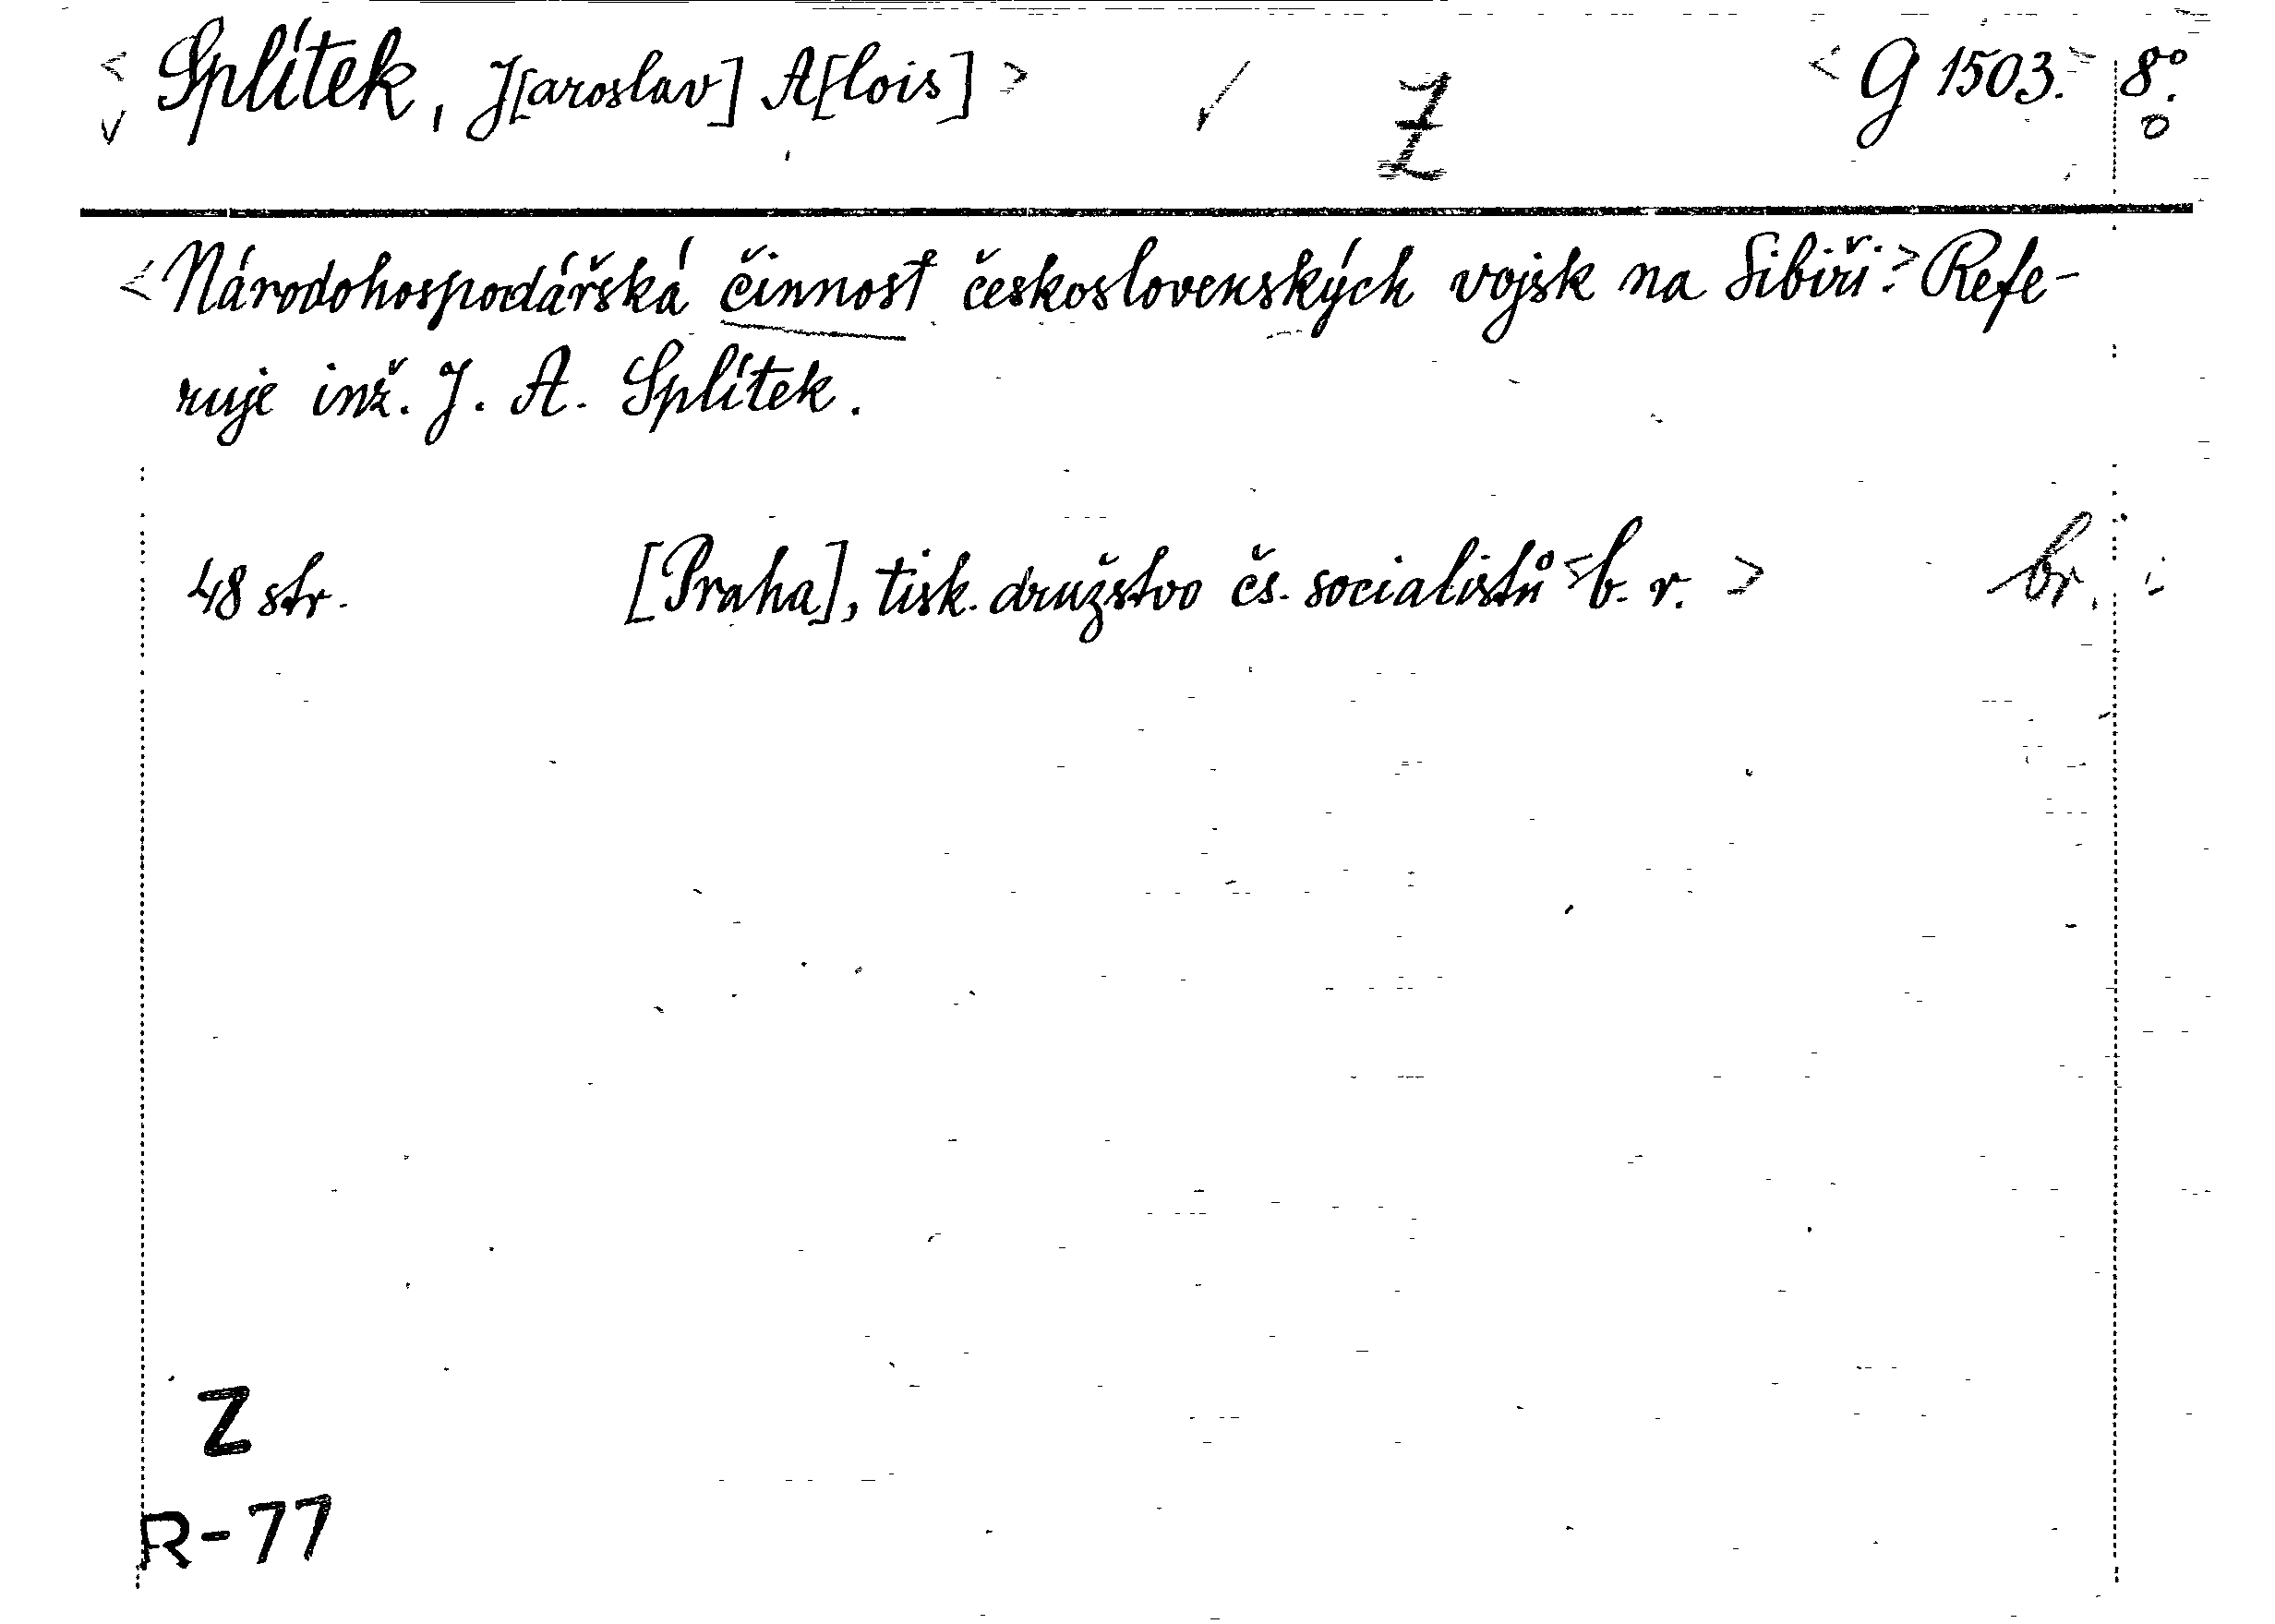 < Splítek, J[aroslav] A[lois] > ✓ Z < G 1503. > 8°.
v o
< Národohospodářská činnost československých vojsk na Sibiři. > Refe-
ruje inž. J. A. Splítek.
48 str. [Praha], tisk. družstvo čs. socialistů < b. r. > br.
Z
R-77